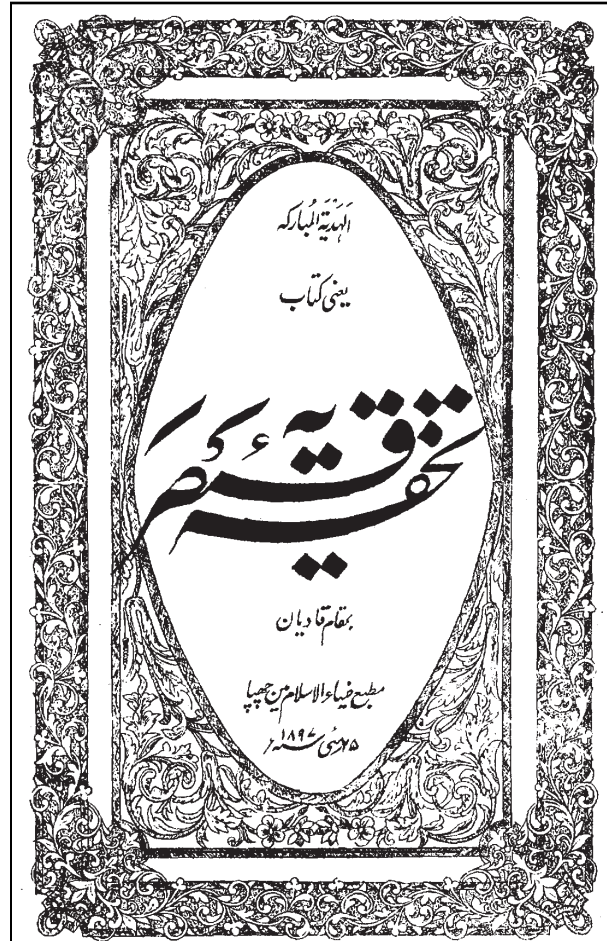 اَلْهَدْيَةُ الْمُبَارَكَه
یعنی کتاب
تحفۂ قیصریہ
بمقام قادیان
مطبع ضیاء الاسلام میں چھپا
۲۵ مئی ۱۸۹۷ء